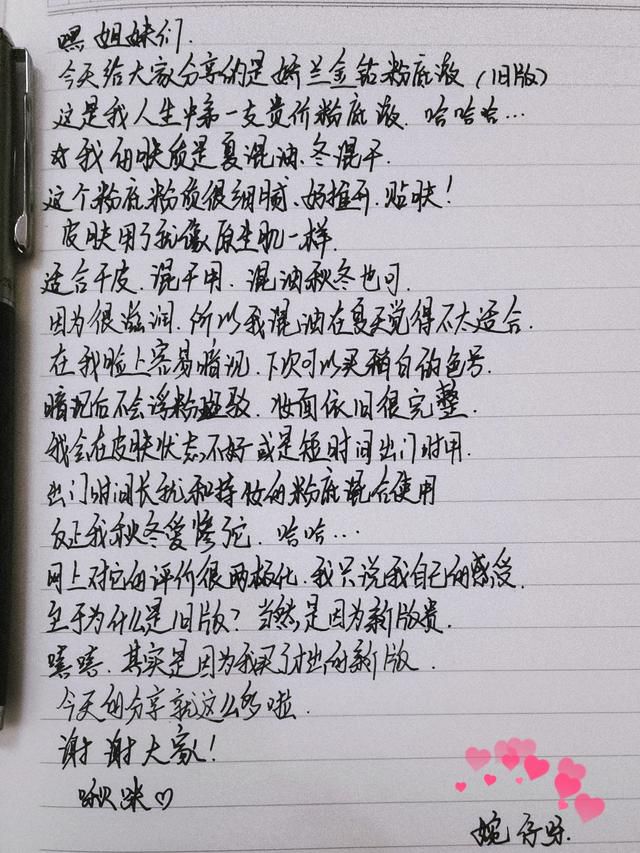 嘿 姐妹们.
今天给大家分享的是娇兰金钻粉底液（旧版）
这是我人生中第一支贵价粉底液. 哈哈哈…
我的肤质是夏混油、冬混干.
这个粉底粉质很细腻、好推开、贴肤！
皮肤用了就像原生肌一样.
适合干皮、混干用. 混油秋冬也可.
因为很滋润. 所以我混油在夏天觉得不太适合.
在我脸上容易暗沉. 下次可以买稍白的色号.
暗沉后不会浮粉斑驳. 妆面依旧很完整.
我会在皮肤状态不好或是短时间出门时用.
出门时间长就和持妆的粉底混合使用
反正我秋冬爱惨它. 哈哈…
网上对它的评价很两极化. 我只说我自己的感受.
至于为什么是旧版？当然是因为新版贵.
嘻嘻. 其实是因为我买了他的新版.
今天的分享就这么多啦.
谢谢大家！
啾咪♡
婉